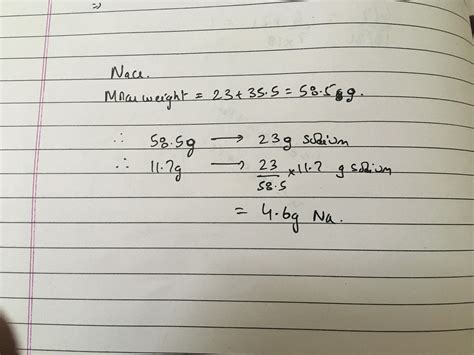 ⇒
Nacl.
Molar weight = 23 + 35.5 = 58.5 g.
∴ 58.5g → 23g sodium
∴ 11.7g → 23/58.5 × 11.7 g sodium
= 4.6g Na.